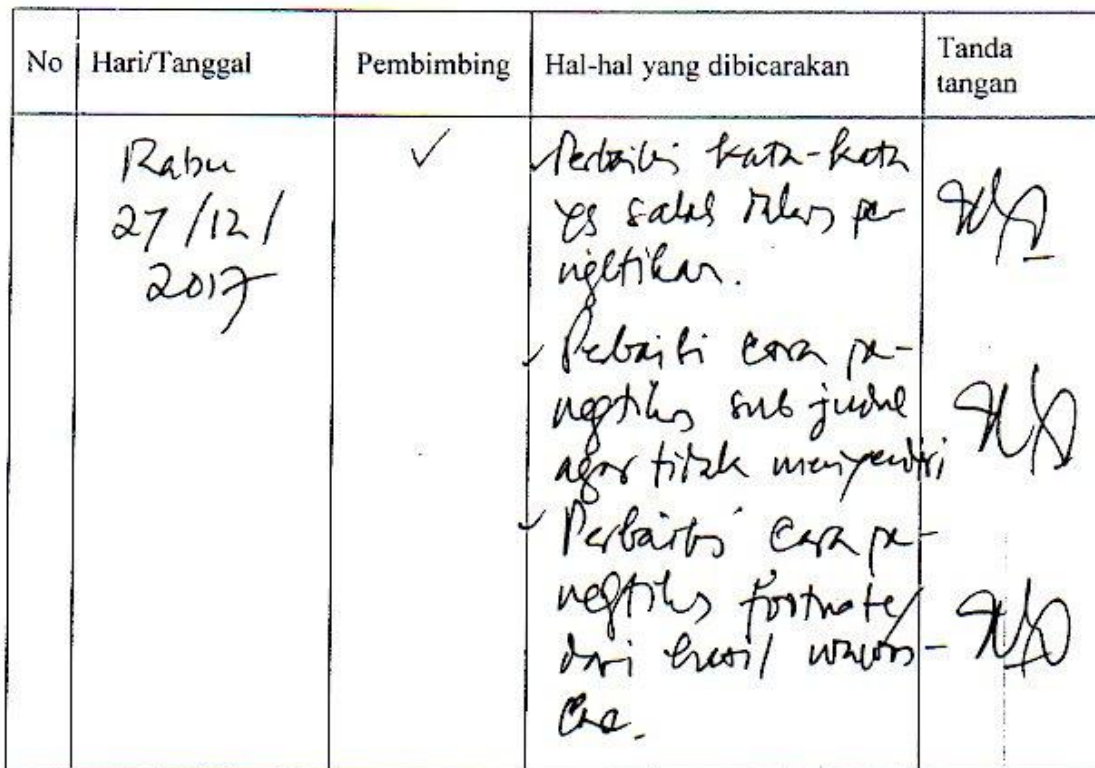 No Hari/Tanggal Pembimbing Hal-hal yang dibicarakan Tanda tangan
Rabu
27/12/
2017
✓
✓ Perbaiki kata-kata
yg salah dlm pe-
ngetikan.
✓ Perbaiki cara pe-
ngetikan sub judul
agar tidak menyendiri
✓ Perbaiki cara pe-
ngetikan footnote/
dari hasil wawan-
cara.